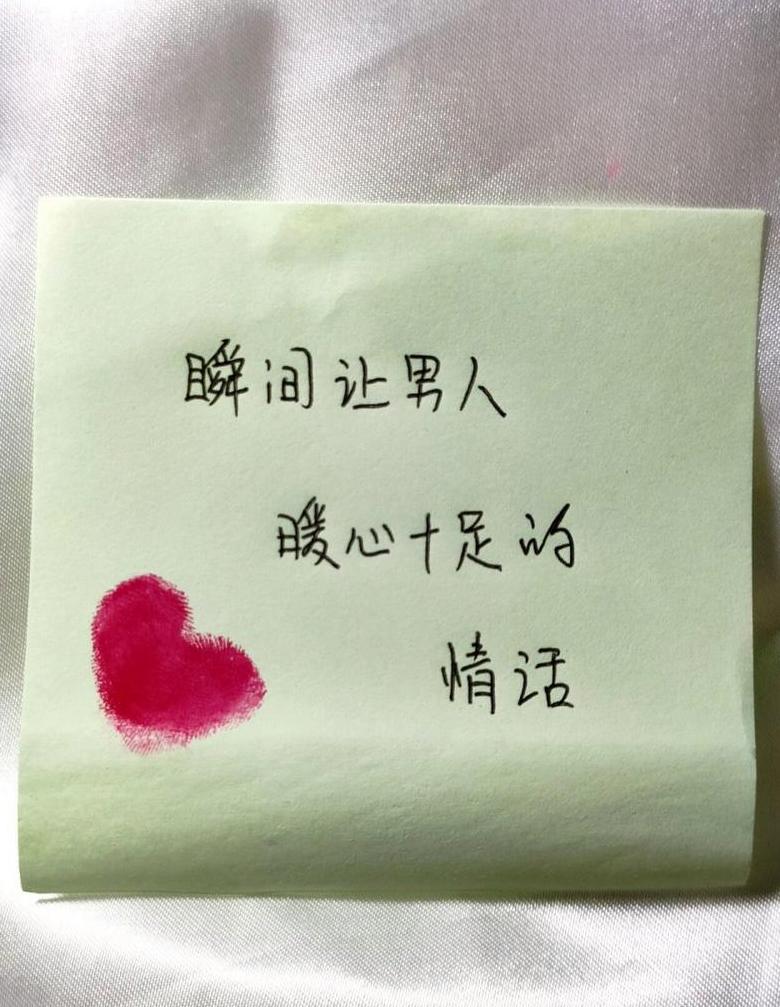 瞬间让男人
暖心十足的
情话